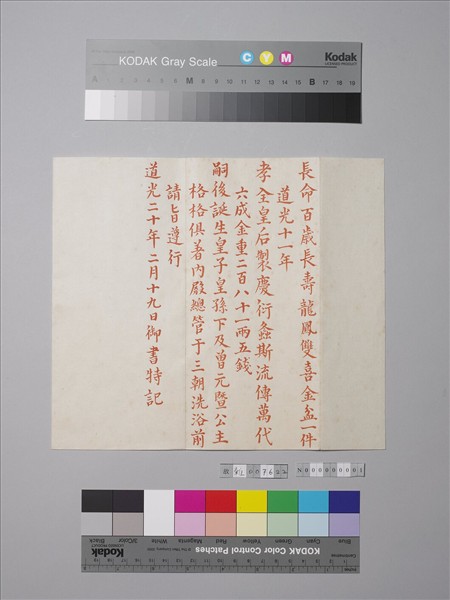 KODAK Gray Scale
C Y M
Kodak
LICENSED PRODUCT
A 1 2 3 4 5 6 M 8 9 10 11 12 13 14 15 B 17 18 19
長命百歲長壽龍鳳雙喜金盆一件
道光十一年
孝全皇后製慶衍螽斯流傳萬代
六成金重二百八十一兩五錢
嗣後誕生皇子皇孫下及曾元暨公主
格格俱著內殿總管于三朝洗浴前
請旨遵行
道光二十年二月十九日御書特記
N000000001
Blue Cyan Green Yellow Red Magenta White 3/Color Black
KODAK Color Control Patches
Kodak
LICENSED PRODUCT